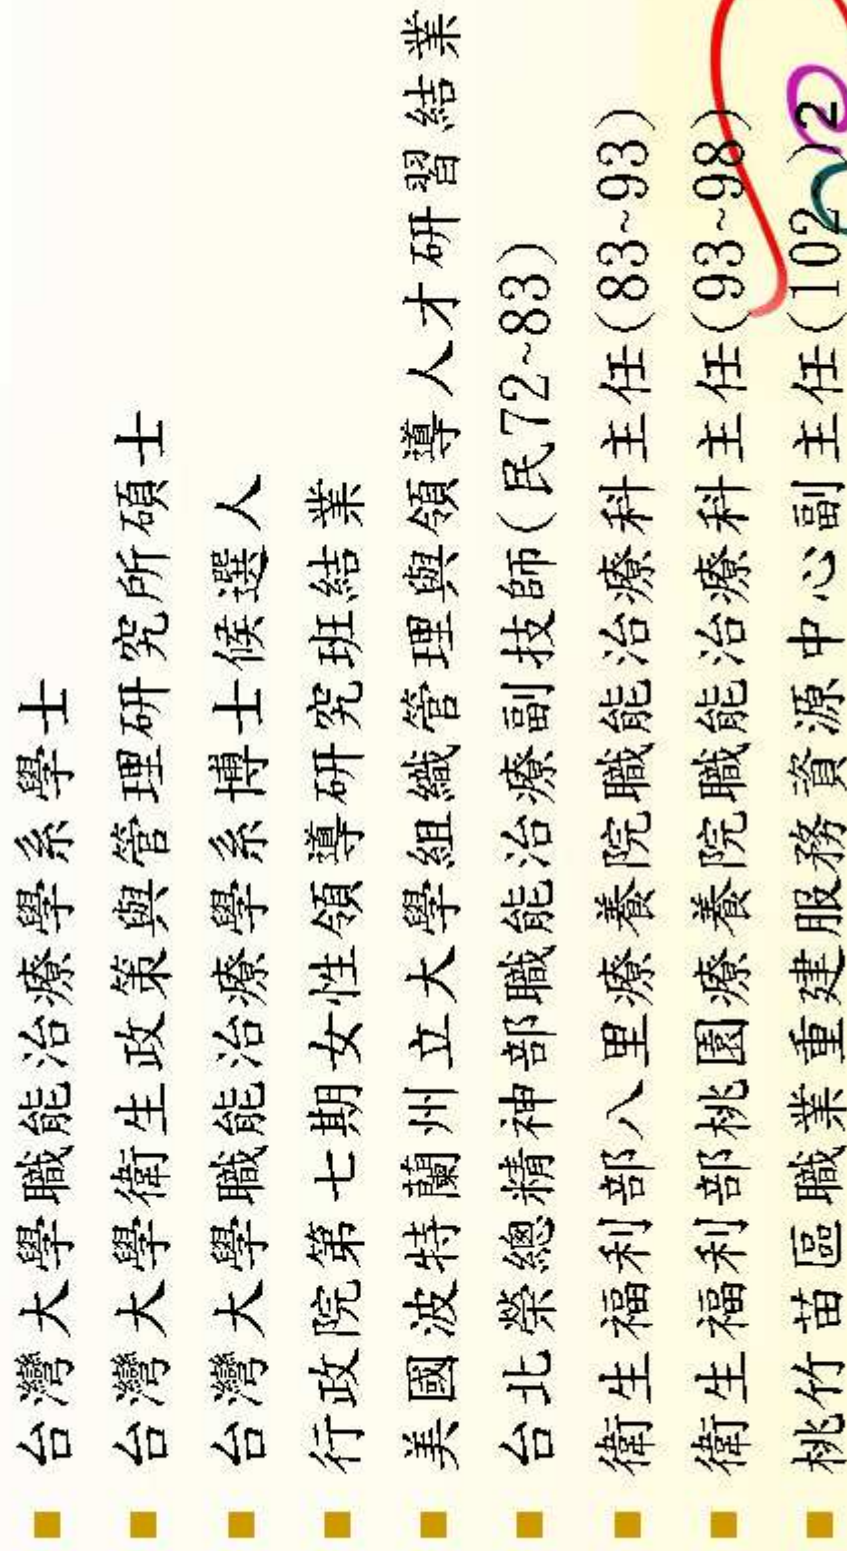 ■ 台灣大學職能治療學系學士
■ 台灣大學衛生政策與管理研究所碩士
■ 台灣大學職能治療學系博士候選人
■ 行政院第七期女性領導研究班結業
■ 美國波特蘭州立大學組織管理與領導人才研習結業
■ 台北榮總精神部職能治療副技師(民72~83)
■ 衛生福利部八里療養院職能治療科主任(83~93)
■ 衛生福利部桃園療養院職能治療科主任(93~98)
■ 桃竹苗區職業重建服務資源中心副主任(102 )2